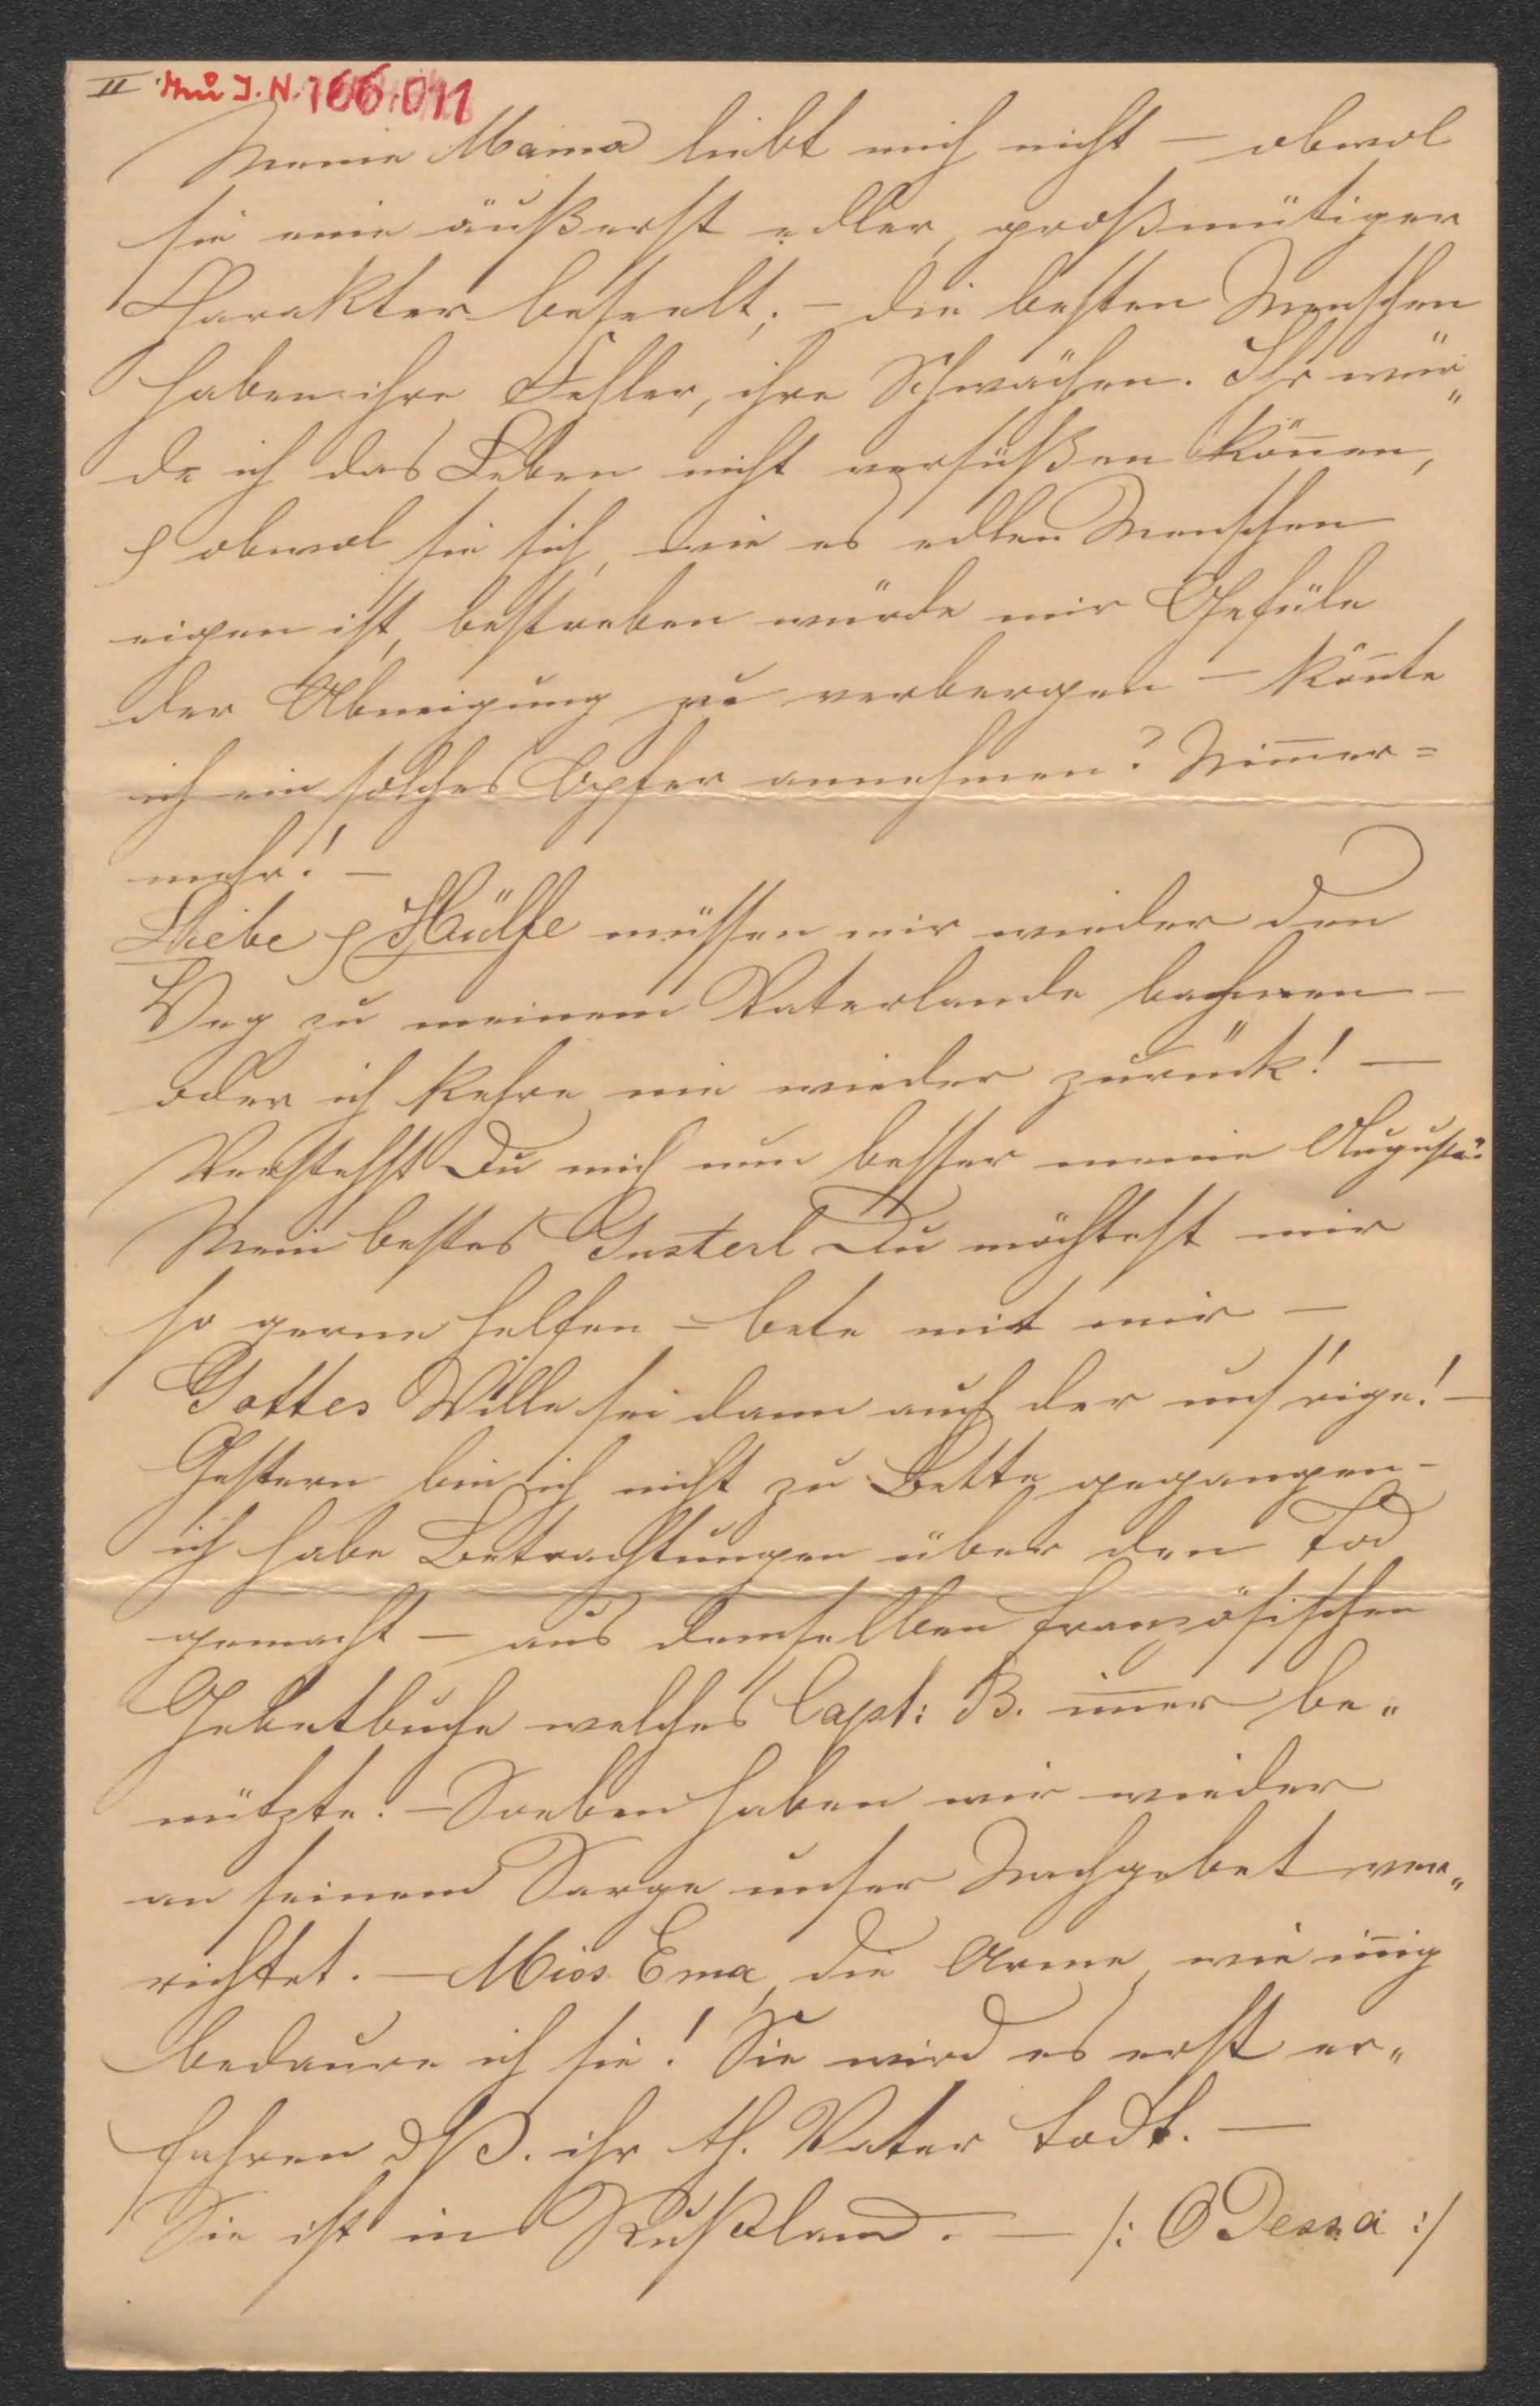 II J. N. 166.011
Meine Mama liebt mich nicht – obwol
sie eine äußerst edler, großmütiger
Charakter beseelt; – die besten Menschen
haben ihre Fehler, ihre Schwächen. Ihr wür„
de ich das Leben nicht versüßen kön̄en,
& obwol sie sich, wie es edlen Menschen
eigen ist, bestreben würde mir Gefüle
der Abneigung zu verbergen – kön̄te
ich ein solches Opfer annehmen? Nim̄er=
mehr! –
Liebe & Hülfe müssen mir wieder den
Weg zu meinem Vaterlande bahnen –
oder ich kehre nie wieder zurück! –
Verstehst Du mich nun besser meine Augusta?
Mein bestes Gusterl Du möchtest mir
so gerne helfen = bete mit mir –
Gottes Wille sei dann auch der unsrige! –
Gestern bin ich nicht zu Bette gegangen –
ich habe Betrachtungen über den Tod
gemacht – aus demselben französischen
Gebetbuche welches Capt: B. im̄er be„
nützte. – Soeben haben wir wieder
an seinem Sarge unser Nachgebet ver„
richtet. – Miss Em̄a, die Arme, wie in̄ig
bedaure ich sie! Sie wird es erst er„
fahren dß. ihr th. Vater todt. –
Sie ist in Rußland. – /: Odessa :/